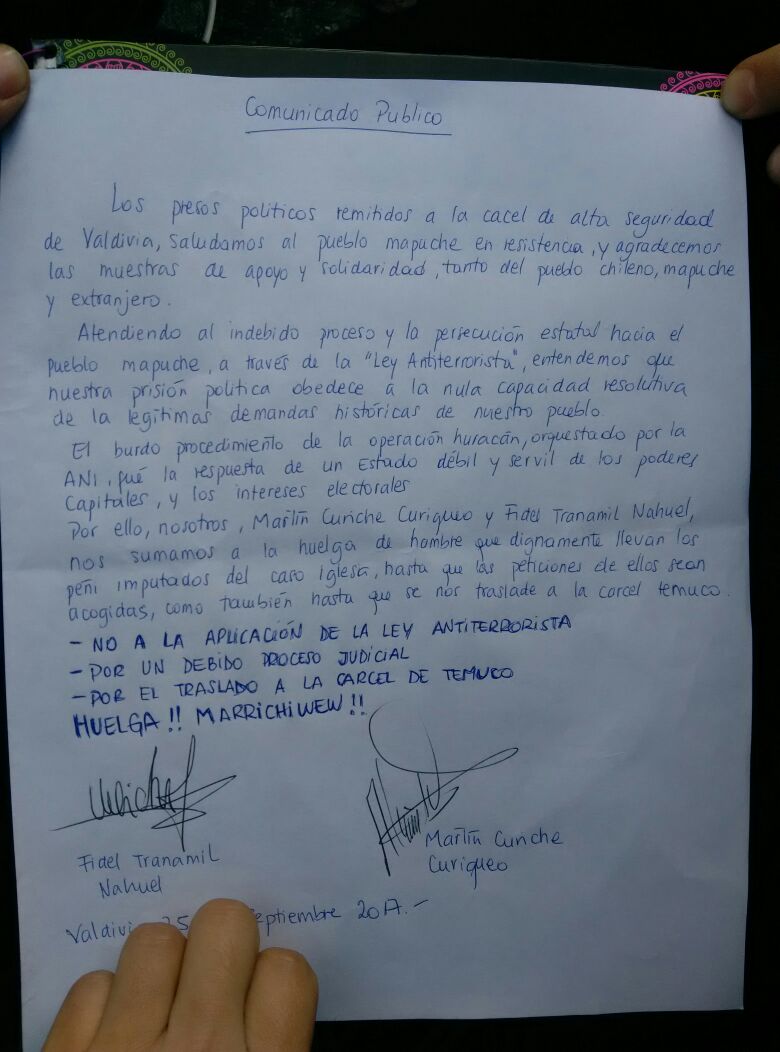 Comunicado Publico
Los presos politicos remitidos a la cacel de alta seguridad
de Valdivia, saludamos al pueblo mapuche en resistencia, y agradecemos
las muestras de apoyo y solidaridad, tanto del pueblo chileno, mapuche
y extranjero.
Atendiendo al indebido proceso y la persecución estatal hacia el
pueblo mapuche, a través de la "Ley Antiterrorista", entendemos que
nuestra prisión politica obedece a la nula capacidad resolutiva
de la legitimas demandas históricas de nuestro pueblo.
El burdo procedimiento de la operación huracán, orquestado por la
ANI, fué la respuesta de un Estado débil y servil de los poderes
Capitales, y los intereses electorales
Por ello, nosotros, Martin Curiche Curiqueo y Fidel Tranamil Nahuel,
nos sumamos a la huelga de hambre que dignamente llevan los
peñi imputados del caso iglesia, hasta que las peticiones de ellos sean
acogidas, como también hasta que se nos traslade a la carcel temuco.
- NO A LA APLICACIÓN DE LA LEY ANTITERRORISTA
- POR UN DEBIDO PROCESO JUDICIAL
- POR EL TRASLADO A LA CARCEL DE TEMUCO
HUELGA!! MARRICHIWEW!!
Fidel Tranamil
Nahuel
Martin Curiche
Curiqueo
25 2017.-